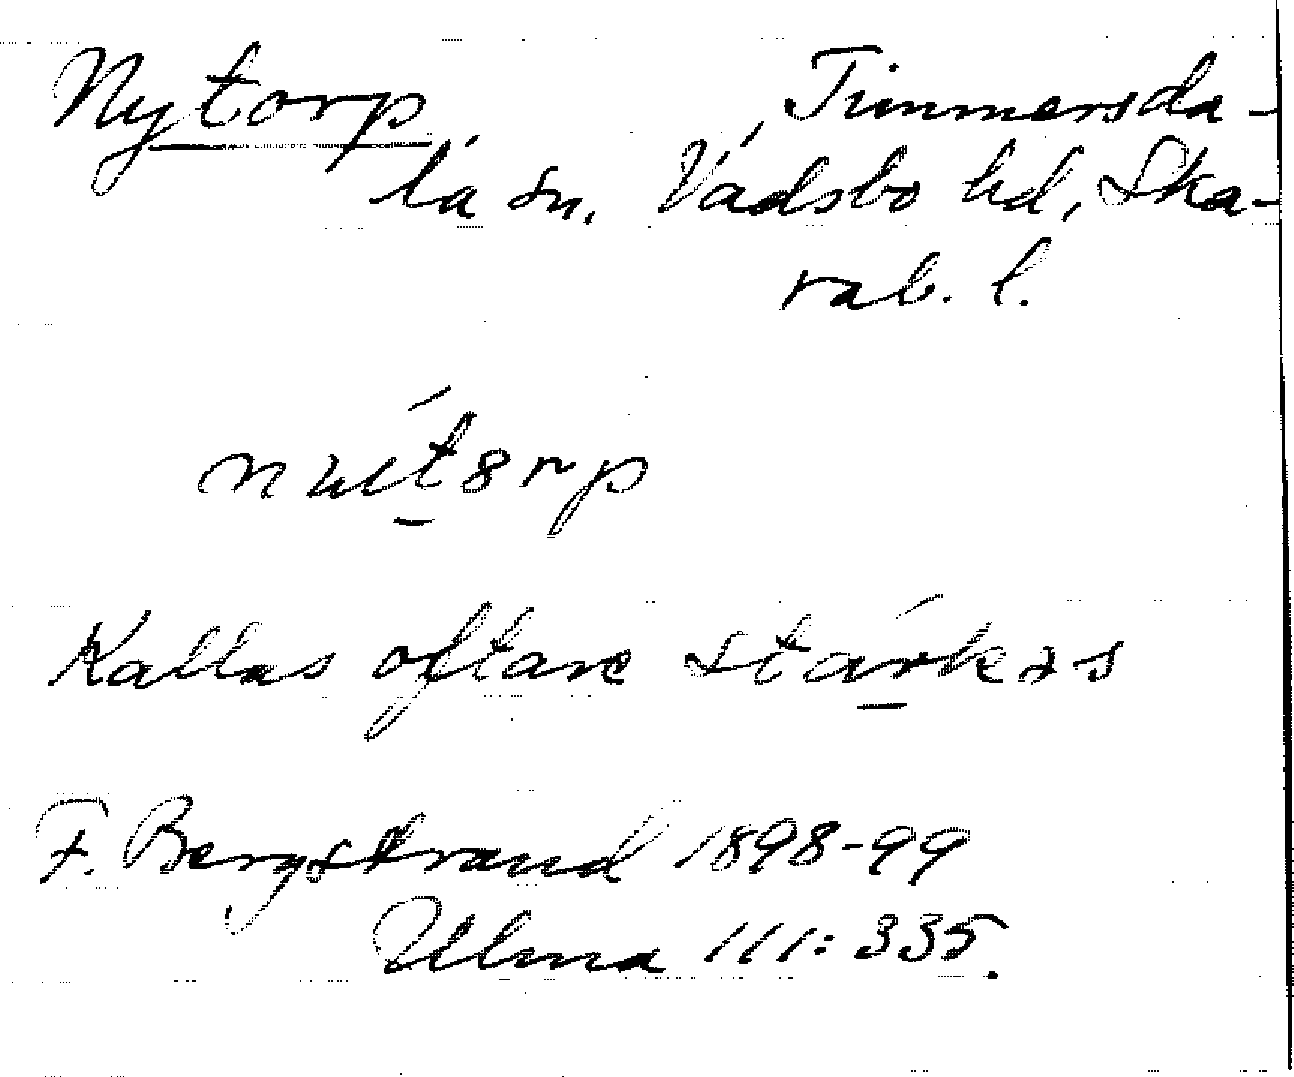 Nytorp, Timmersda-
la sn. Vadsbo hd, Ska-
rab. l.
Kallas oftare
F. Bergstrand 1898-99
Ulma 111:335.